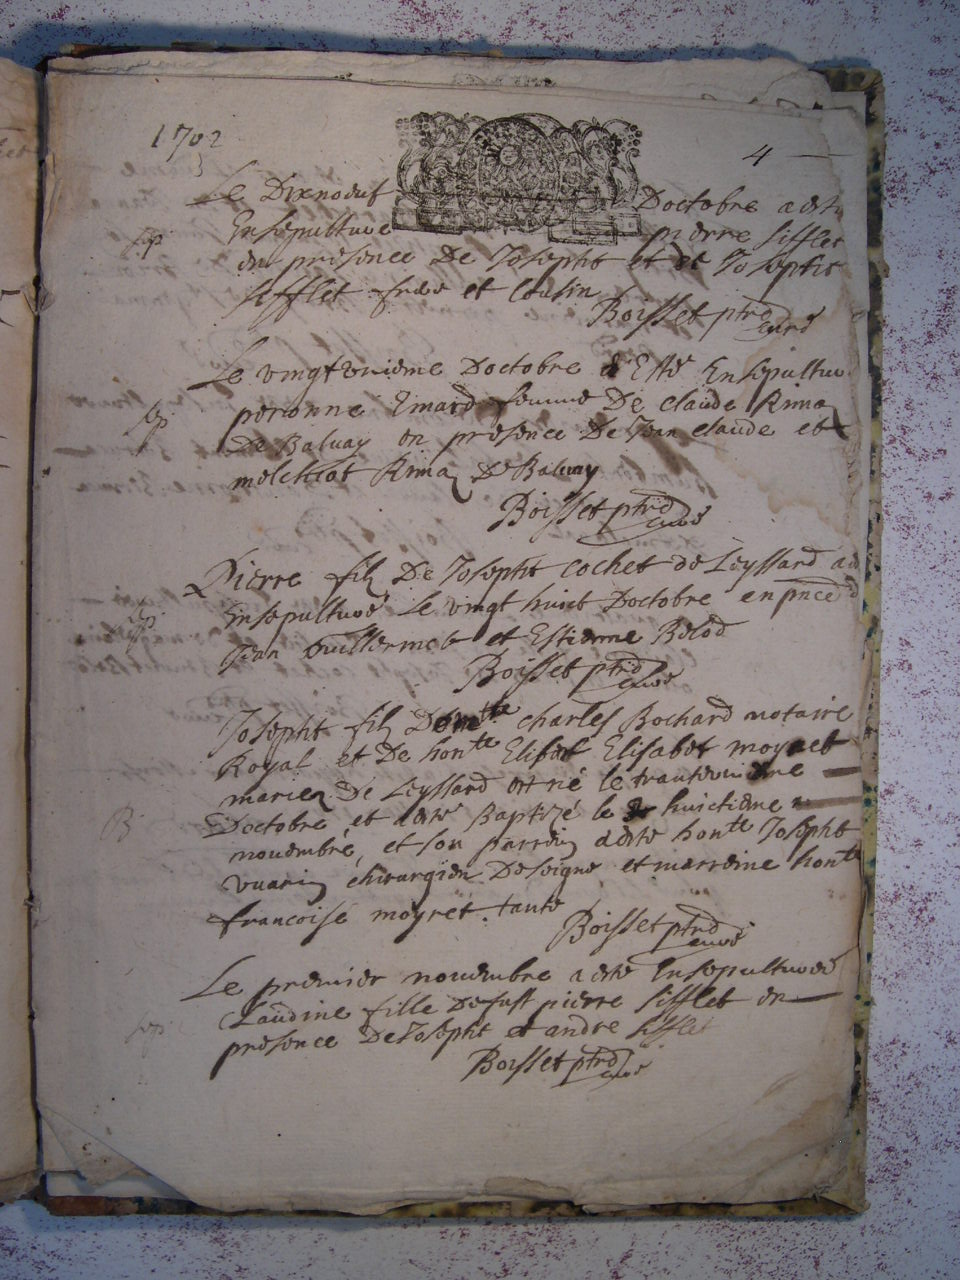 1702
4
Le Dixneduf Doctobre a esté
sep Ensepulturé pierre sifflet
en presence De Joseph et de Joseph
sifflet frere et cousin
Boisset ptre curé
Le vingt unieme Doctobre a Esté Ensepultur
sep peronne Emard femme De claude Rima
De Balvay en presence De Jean claude et
melchiot Rimaz De Balvay
Boisset ptre curé
Pierre filz De Joseph cochet de Leyssard a e
sep Ensepulturé Le vingt huict Doctobre en pnce d
Jean vuillermet et Estienne Belod
Boisset ptre curé
Joseph filz De charles Bochard notaire
Royal et De honte Elisabet moyret
mariez De Leyssard est né le tranteunieme
B Doctobre et a esté Baptizé le huictieme
novembre, et son parrein a esté honte Joseph
vuarin chirurgien De soigne et marreine honte
francoise moyret tante
Boisset ptre curé
Le premier novembre a esté Ensepulturée
sep Claudine fille De fust pierre sifflet en
presence De Joseph et andre sifflet
Boisset ptre curé